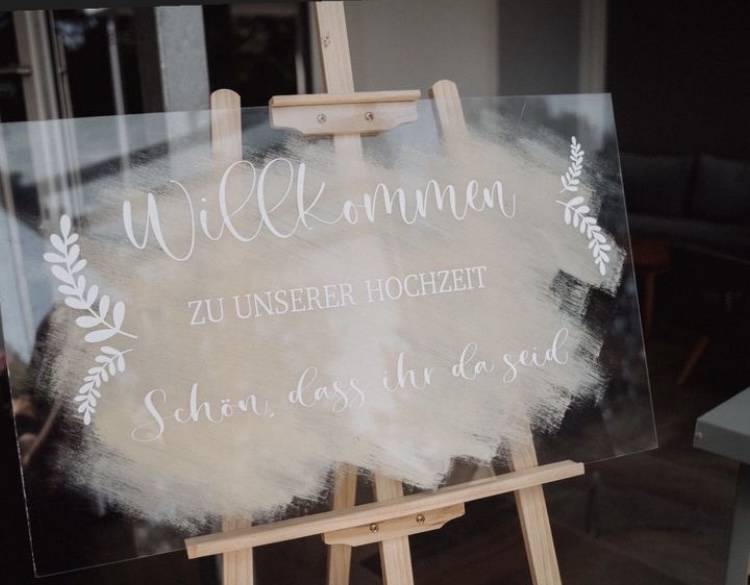 Willkommen
ZU UNSERER HOCHZEIT
Schön, dass ihr da seid